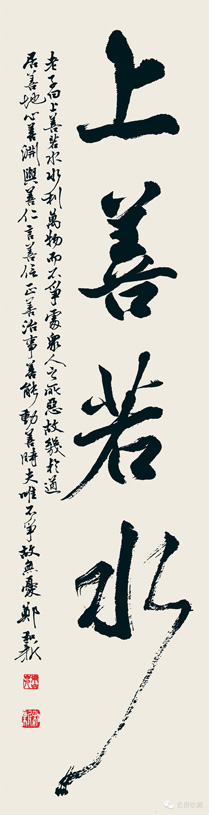 上善若水
老子曰上善若水水利萬物而不爭處衆人之所惡故幾於道
居善地心善淵與善仁言善信正善治事善能動善時夫唯不爭故無憂鄭